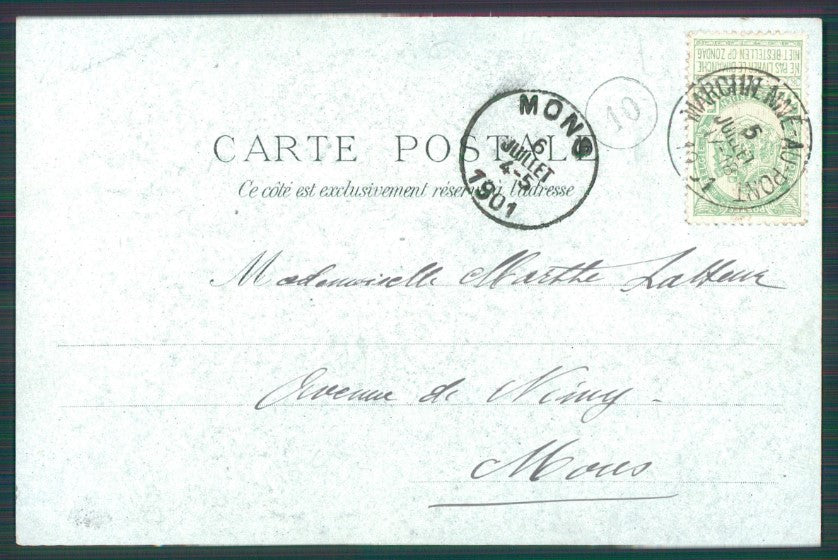 CARTE POSTALE
Ce côté est exclusivement réservé à l'adresse
MONS
6
JUILLET
4-5
1901
10
NE PAS LIVRER LE DIMANCHE
NIET BESTELLEN OP ZONDAG
MARCHIENNE-AU-PONT
5
JUILLET
1901
Mademoiselle Marthe Latteur
Avenue de Nimy -
Mons